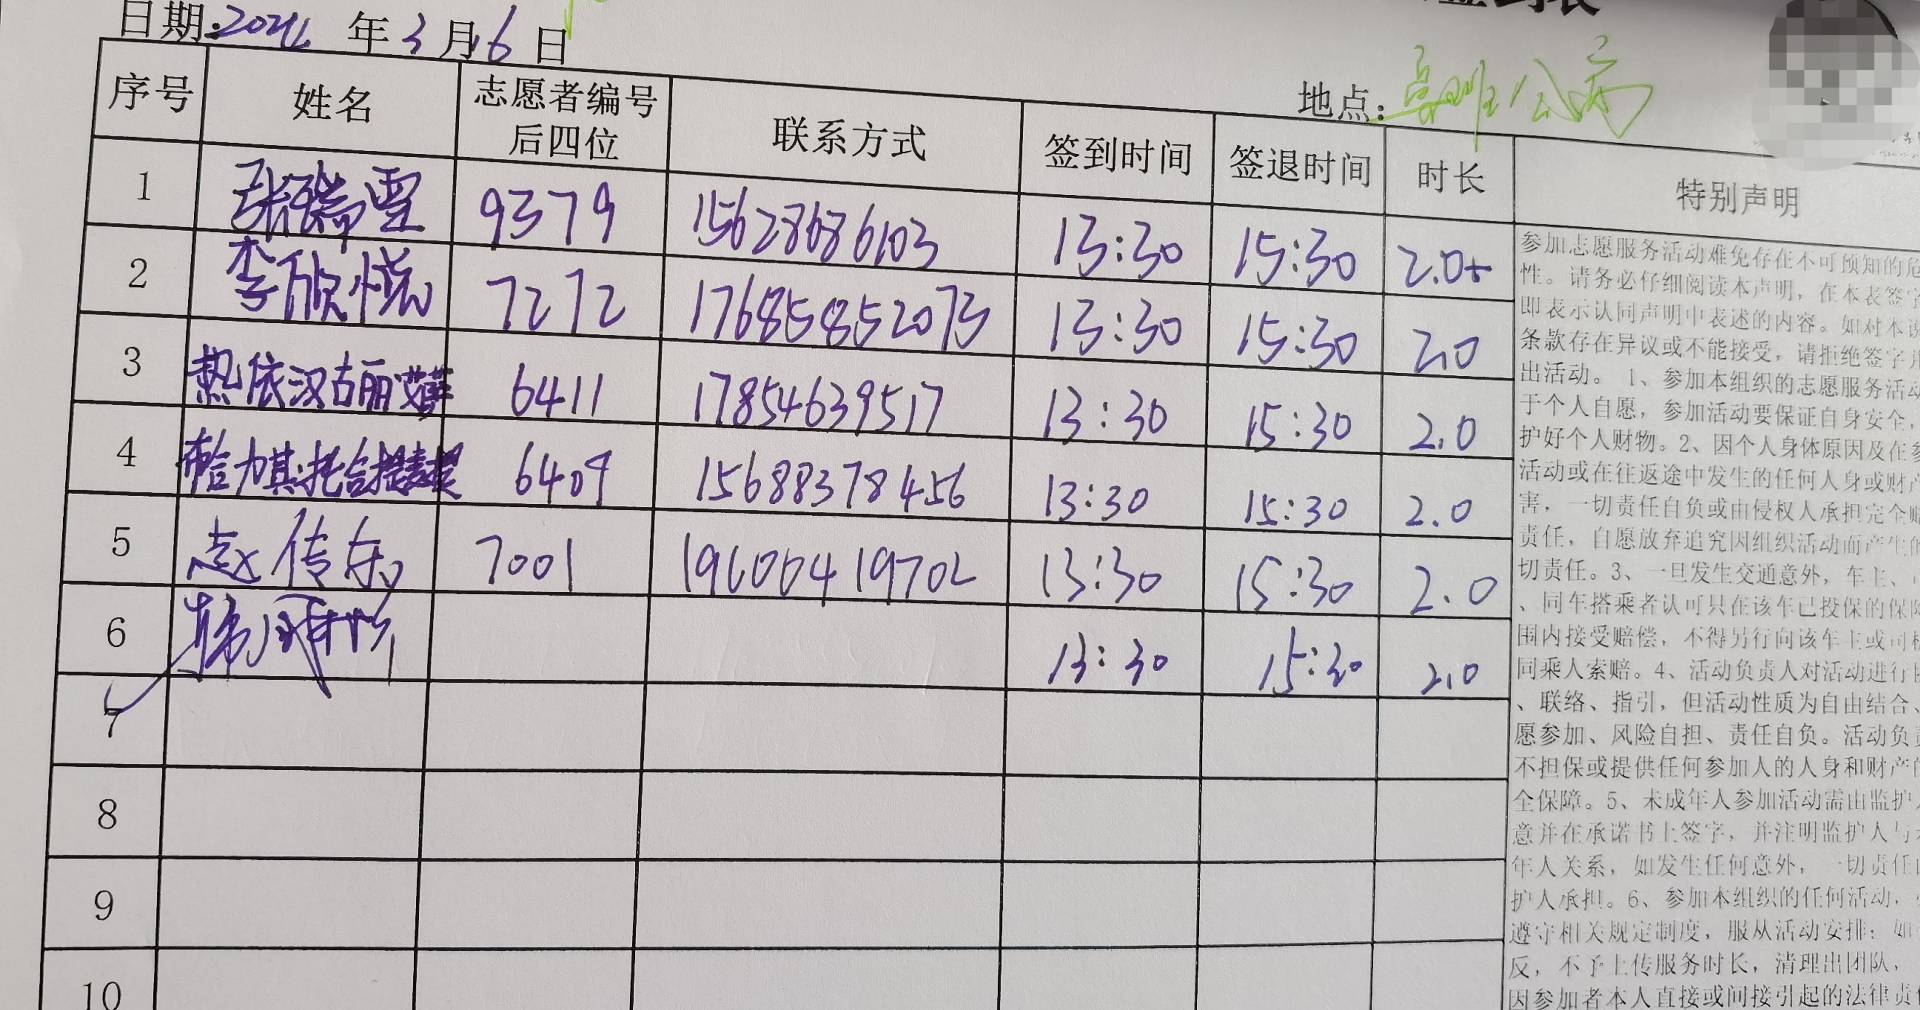 日期:2024年3月6日
地点:
序号 姓名 志愿者编号后四位 联系方式 签到时间 签退时间 时长 特别声明
1 张瑞雪 9379 15628686103 13:30 15:30 2.0
2 李欣悦 7272 17685852073 13:30 15:30 2.0
3 热依汉古丽 6411 17854639517 13:30 15:30 2.0
4 6409 15688378456 13:30 15:30 2.0
5 赵传东 7001 19606419702 13:30 15:30 2.0
6 13:30 15:30 2.0
7
8
9
10
参加志愿服务活动难免存在不可预知的危
性。请务必仔细阅读本声明，在本表签字
即表示认同声明中表述的内容。如对本说
条款存在异议或不能接受，请拒绝签字并
出活动。 1、参加本组织的志愿服务活动
于个人自愿，参加活动要保证自身安全，
护好个人财物。2、因个人身体原因及在参
活动或在往返途中发生的任何人身或财产
害，一切责任自负或由侵权人承担完全赔
责任，自愿放弃追究因组织活动而产生的
切责任。3、一旦发生交通意外，车主、
、同车搭乘者认可只在该车已投保的保险
围内接受赔偿，不得另行向该车主或司机
同乘人索赔。4、活动负责人对活动进行
、联络、指引，但活动性质为自由结合、
愿参加、风险自担、责任自负。活动负责
不担保或提供任何参加人的人身和财产的
全保障。5、未成年人参加活动需由监护人
意并在承诺书上签字，并注明监护人与
年人关系，如发生任何意外，一切责任由
护人承担。6、参加本组织的任何活动，
遵守相关规定制度，服从活动安排；如
反，不予上传服务时长，清理出团队，
因参加者本人直接或间接引起的法律责任